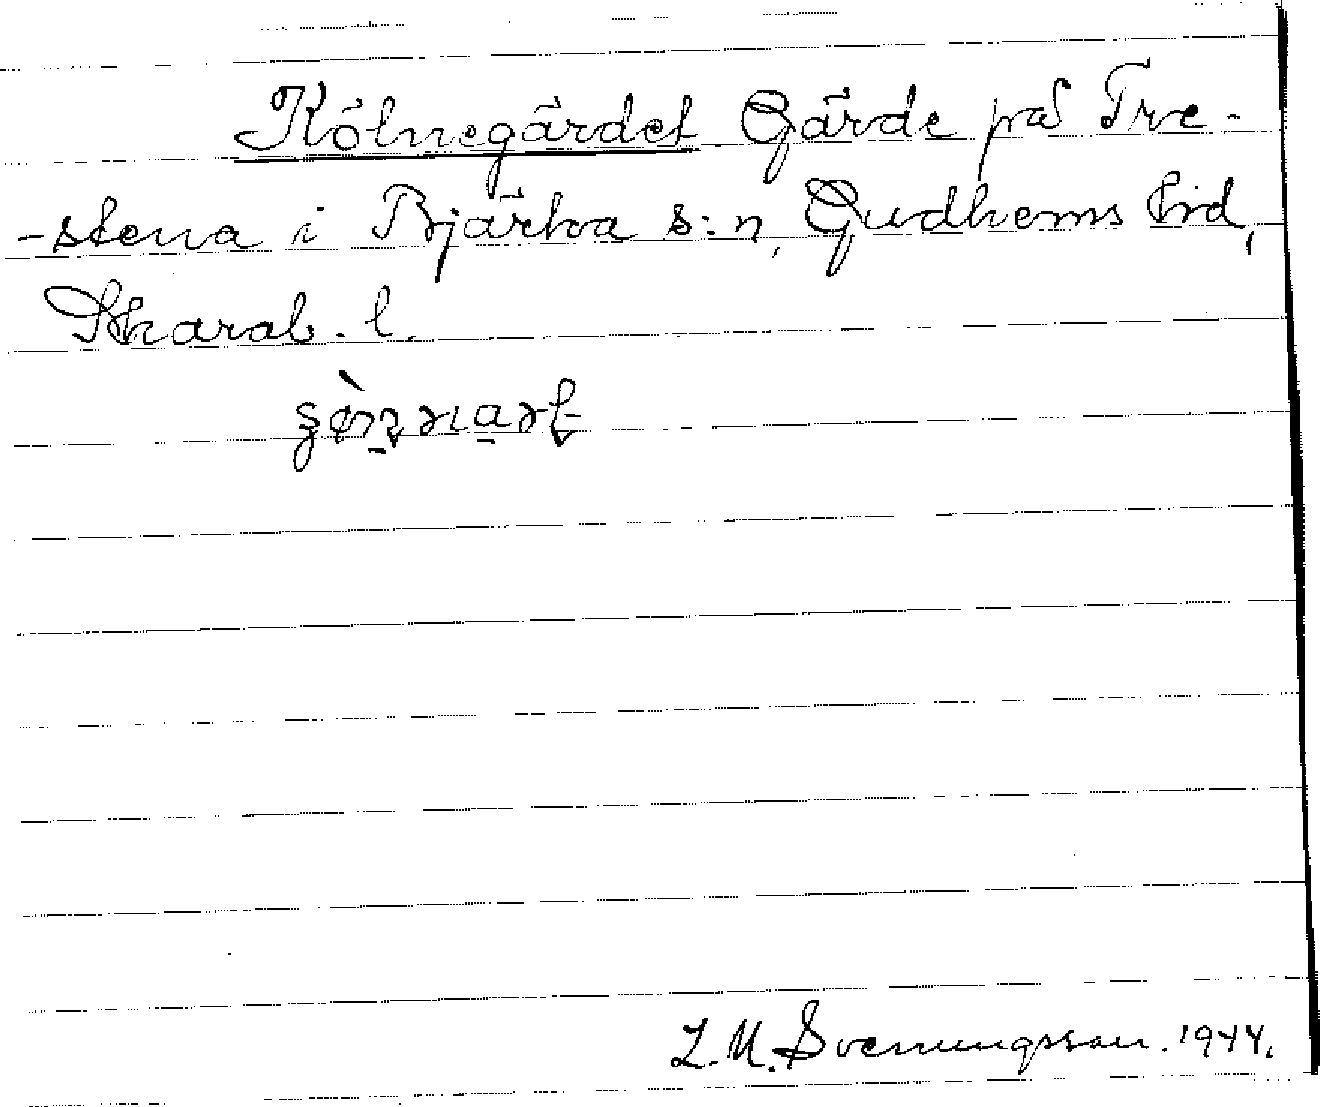 Kölnegärdet Gärde på Tre-
-stena i Bjärka s:n, Gudhems hrd,
Skarab. l.
L. M. Svenungsson. 1944.